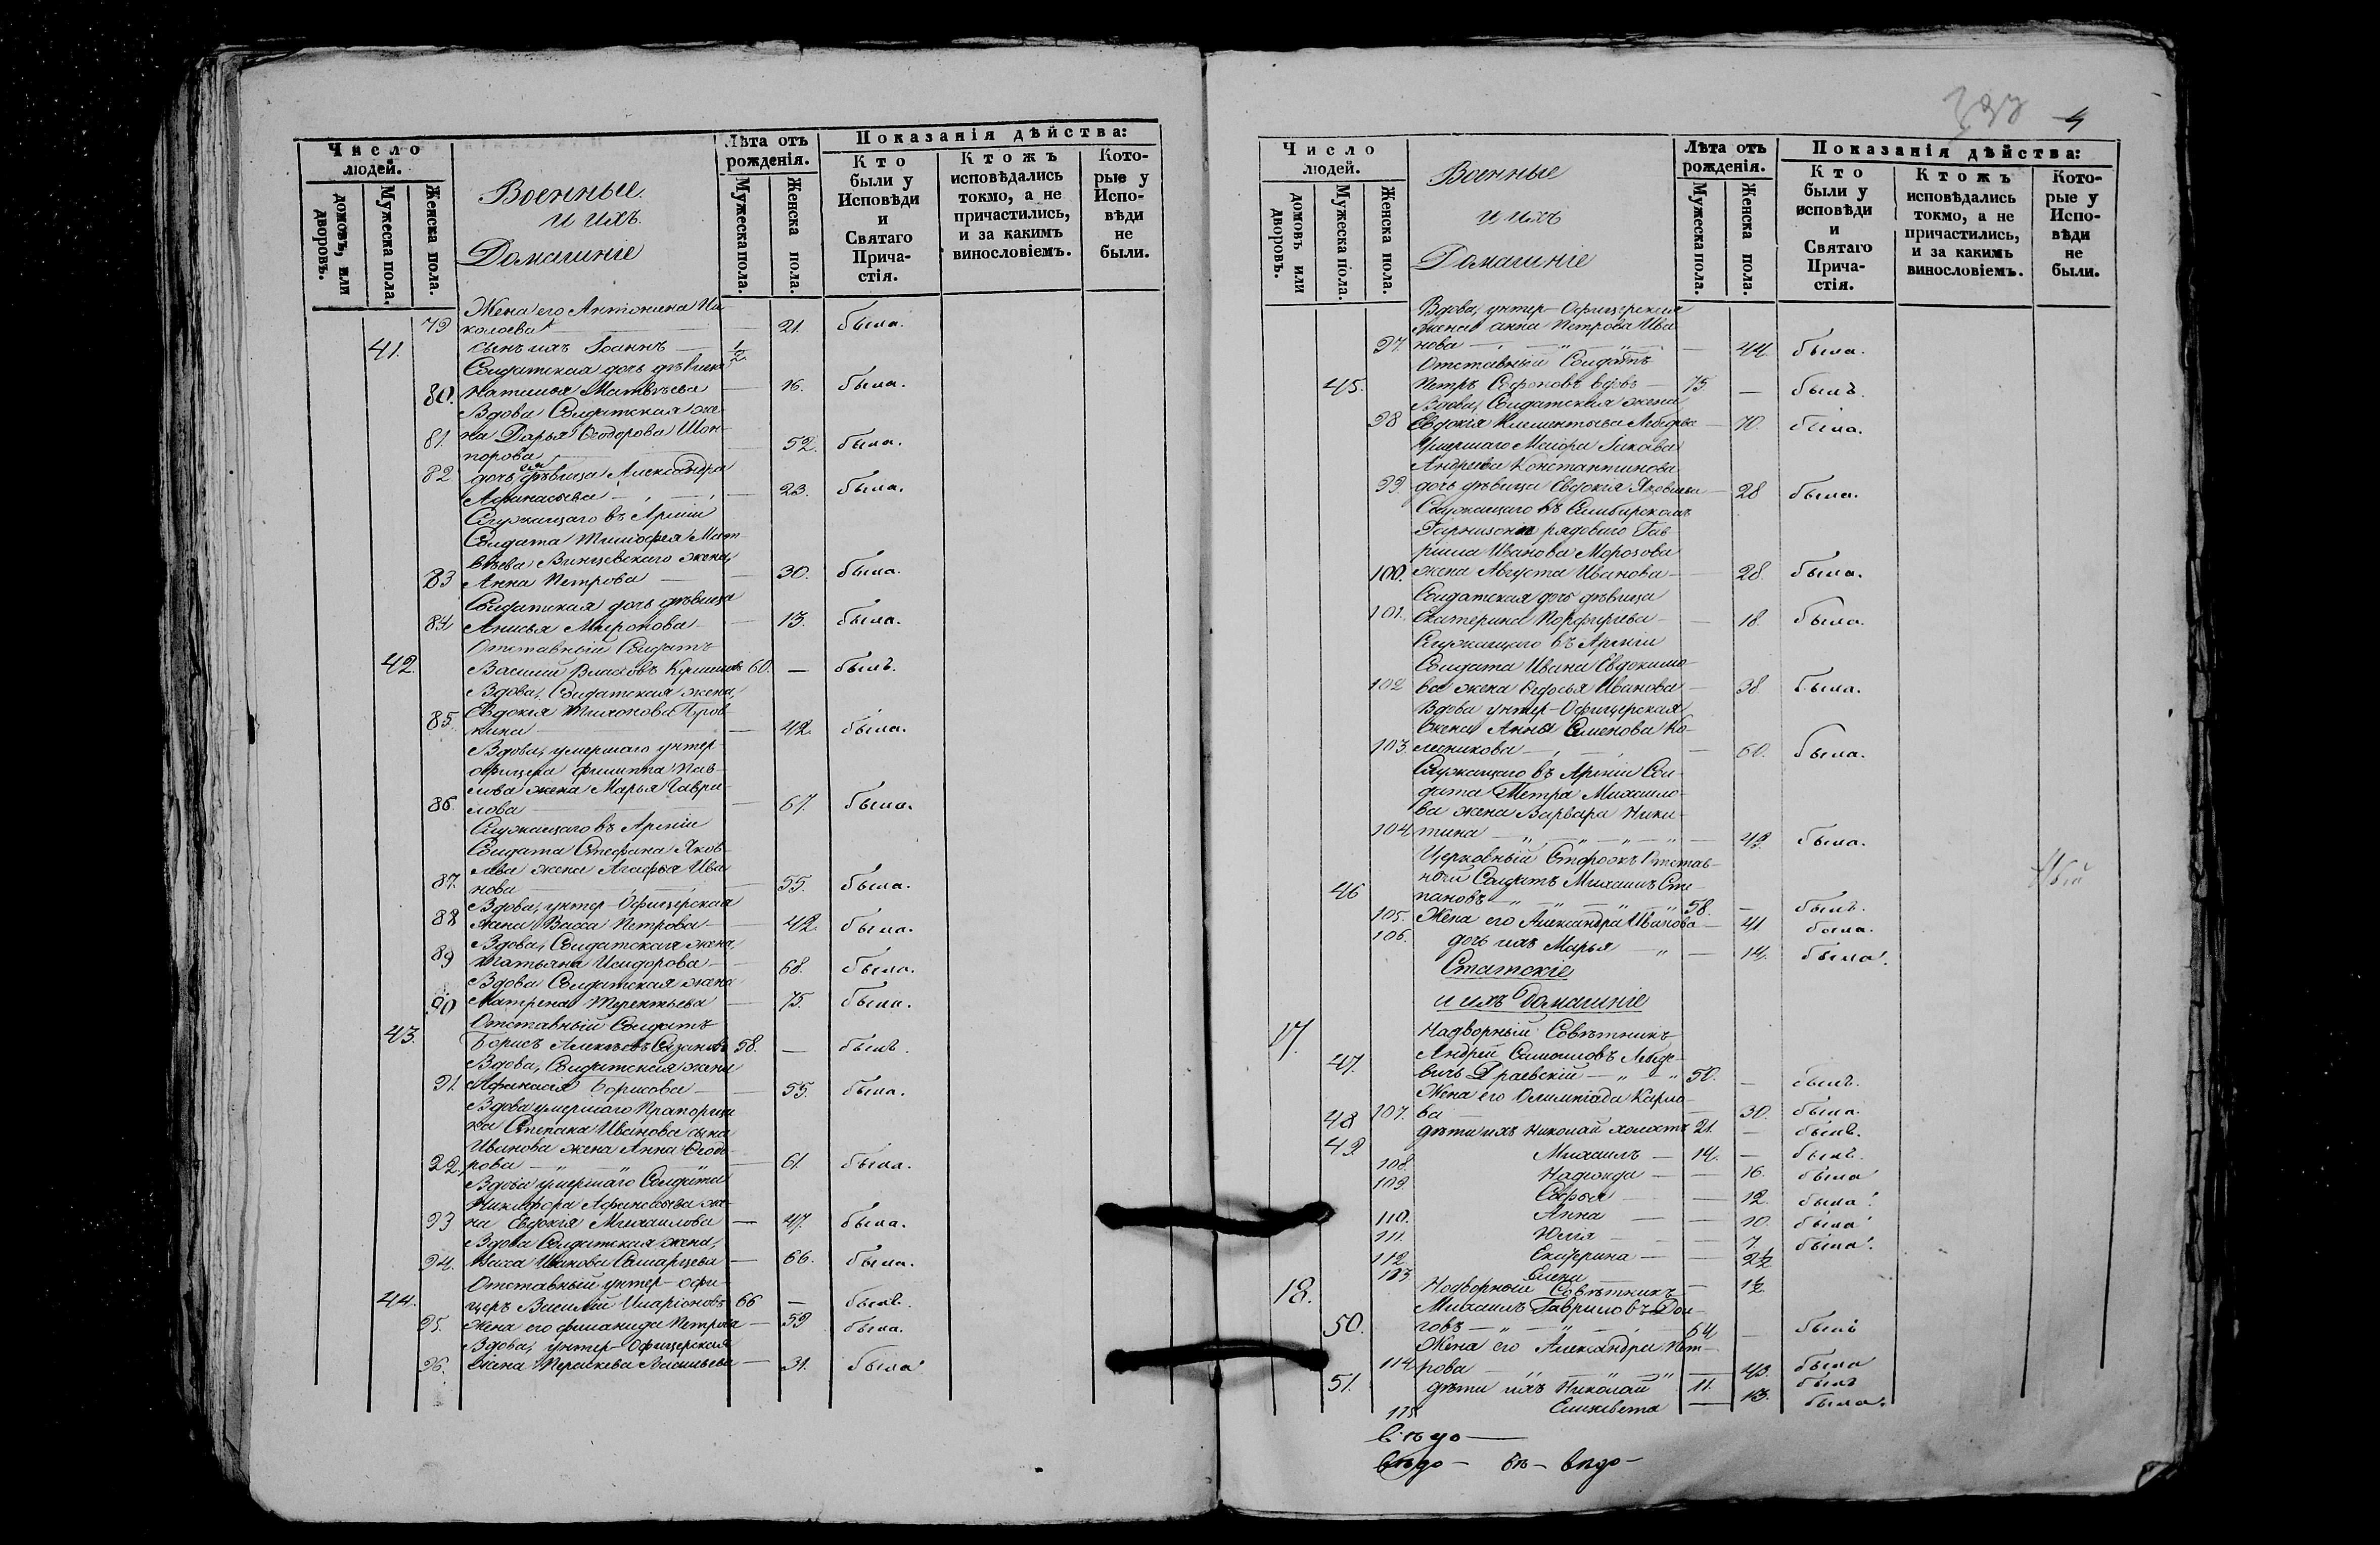 Число людей.
домовъ, или дворовъ.
Мужеска пола.
Женска пола.
Военные
и ихъ
Домашніе
Лѣта отъ рожденія.
Мужеска пола.
Женска пола.
Показанія дѣйства:
Кто были у Исповѣди и Святаго Прича-стія.
Ктожъ исповѣдались токмо, а не причастились, и за какимъ винословіемъ.
Кото-рые у Испо-вѣди не были.
Жена его Антонина Ни-
79 колаева — 21 была.
41. сынъ ихъ Іоаннъ — ½
Солдатская дочь дѣвица
80. Наталья Матвѣева — 16. была.
Вдова Солдатская же-
81. на Дарья Ѳеодорова
порова — 52. была.
82 дочь ея дѣвица Александра
Афанасьева — 23. была.
Служащаго въ Арміи
Солдата Тимофея Мат-
вѣева жена
83 Анна Петрова — 30. была.
Солдатская дочь дѣвица
84 Анисья Миронова — 13. была.
Отставный Солдатъ
42. Василий Власовъ 60. — былъ.
Вдова, Солдатская жена,
Евдокія Тихонова
85. кина — 42. была.
Вдова, умершаго унтер-
офицера Филиппа Пав-
лова жена Марья Гаври-
86. лова — 67. была.
Служащаго въ Арміи
Солдата Стефана Яков-
лева жена Агафья Ива-
87. нова — 55. была.
Вдова, унтер-Офицерская
88 жена Васса Петрова — 42. была.
Вдова, Солдатская жена
89 Татьяна Исидорова — 68. была.
Вдова Солдатская жена
90 Матрена Терентьева — 75. была.
Отставный Солдатъ
43. Борисъ Алексѣевъ 58. — былъ.
Вдова, Солдатская жена
91. Афанасія Борисова — 55. была.
Вдова умершаго Прапорщи-
ка Степана Иванова сына
Иванова жена Анна Ѳеодо-
92. рова — 61. была.
Вдова умершаго Солдата
Никифора Афанасьева же-
93 на Евдокія Михайлова — 47. была.
Вдова Солдатская жена,
94. Васса Иванова Самарцева — 66. была.
Отставный унтер-офи-
44. церъ Василій Иларіоновъ 66 — былъ.
95. жена его Филанида Петрова — 59 была.
Вдова, унтер-Офицерская
96. жена Пераскева Васильева — 31. была
4
Число людей.
домовъ или дворовъ.
Мужеска пола.
Женска пола.
Военные
и ихъ
Домашніе
Лѣта отъ рожденія.
Мужеска пола.
Женска пола.
Показанія дѣйства:
Кто были у исповѣди и Святаго Прича-стія.
Ктожъ исповѣдались токмо, а не причастились, и за какимъ винословіемъ.
Кото-рые у Испо-вѣди не были.
Вдова, унтер-Офицерская
жена анна Петрова Ива-
97. нова — 44. была.
Отставный Солдатъ
45. Петръ Софоновъ вдовъ — 75 — былъ.
Вдова, Солдатская жена
98 Евдокія Клементьева — 70. была.
Умершаго Маіора Іакова
Андреева Константинова
99. дочь дѣвица Евдокія Яковлева — 28 была.
Служащаго въ Симбирскомъ
Гарнизонѣ рядоваго Гав-
риила Иванова Морозова
100. жена Августа Иванова — 28. была.
Солдатская дочь дѣвица
101. Екатерина Порфирьева — 18. была.
Служащаго въ Арміи
Солдата Ивана Евдокимо-
102 ва жена Ѳедосья Иванова — 38. была.
Вдова унтер-Офицерская
жена Анна Семенова Ко-
103. лесникова — 60. была.
Служащаго въ Арміи Сол-
дата Петра Михайло-
ва жена Варвара Ники-
104 тина — 49 была.
Церковный Сторожъ Отстав-
ной Солдатъ Михаилъ Сте-
46 пановъ — 58. — былъ.
105. Жена его Александра Иванова — 41 была.
106. дочь ихъ Марья — 14. была.
Статскіе
и ихъ домашніе
17. Надворный Совѣтникъ
Андрей Самойловъ
47. — 50. — былъ.
Жена его Олимпіада Карло-
107. ва — 30. была.
48 дѣти ихъ Николай холостъ 21. — былъ.
49 Михаилъ — 14. — былъ.
108. Надежда — 16. была
109. Софья — 12 была.
110. Анна — 10. была
111. Юлія — 7. была.
112 Екатерина — 2½
113 Елена — 1½
18. Надворный Совѣтникъ
Михаилъ Гавриловъ Дол-
50. говъ — 64 — былъ
Жена его Александра Пет-
114 рова — 43. была
51. дѣти ихъ Николай 11. былъ
115 Елисавета — 13. была.